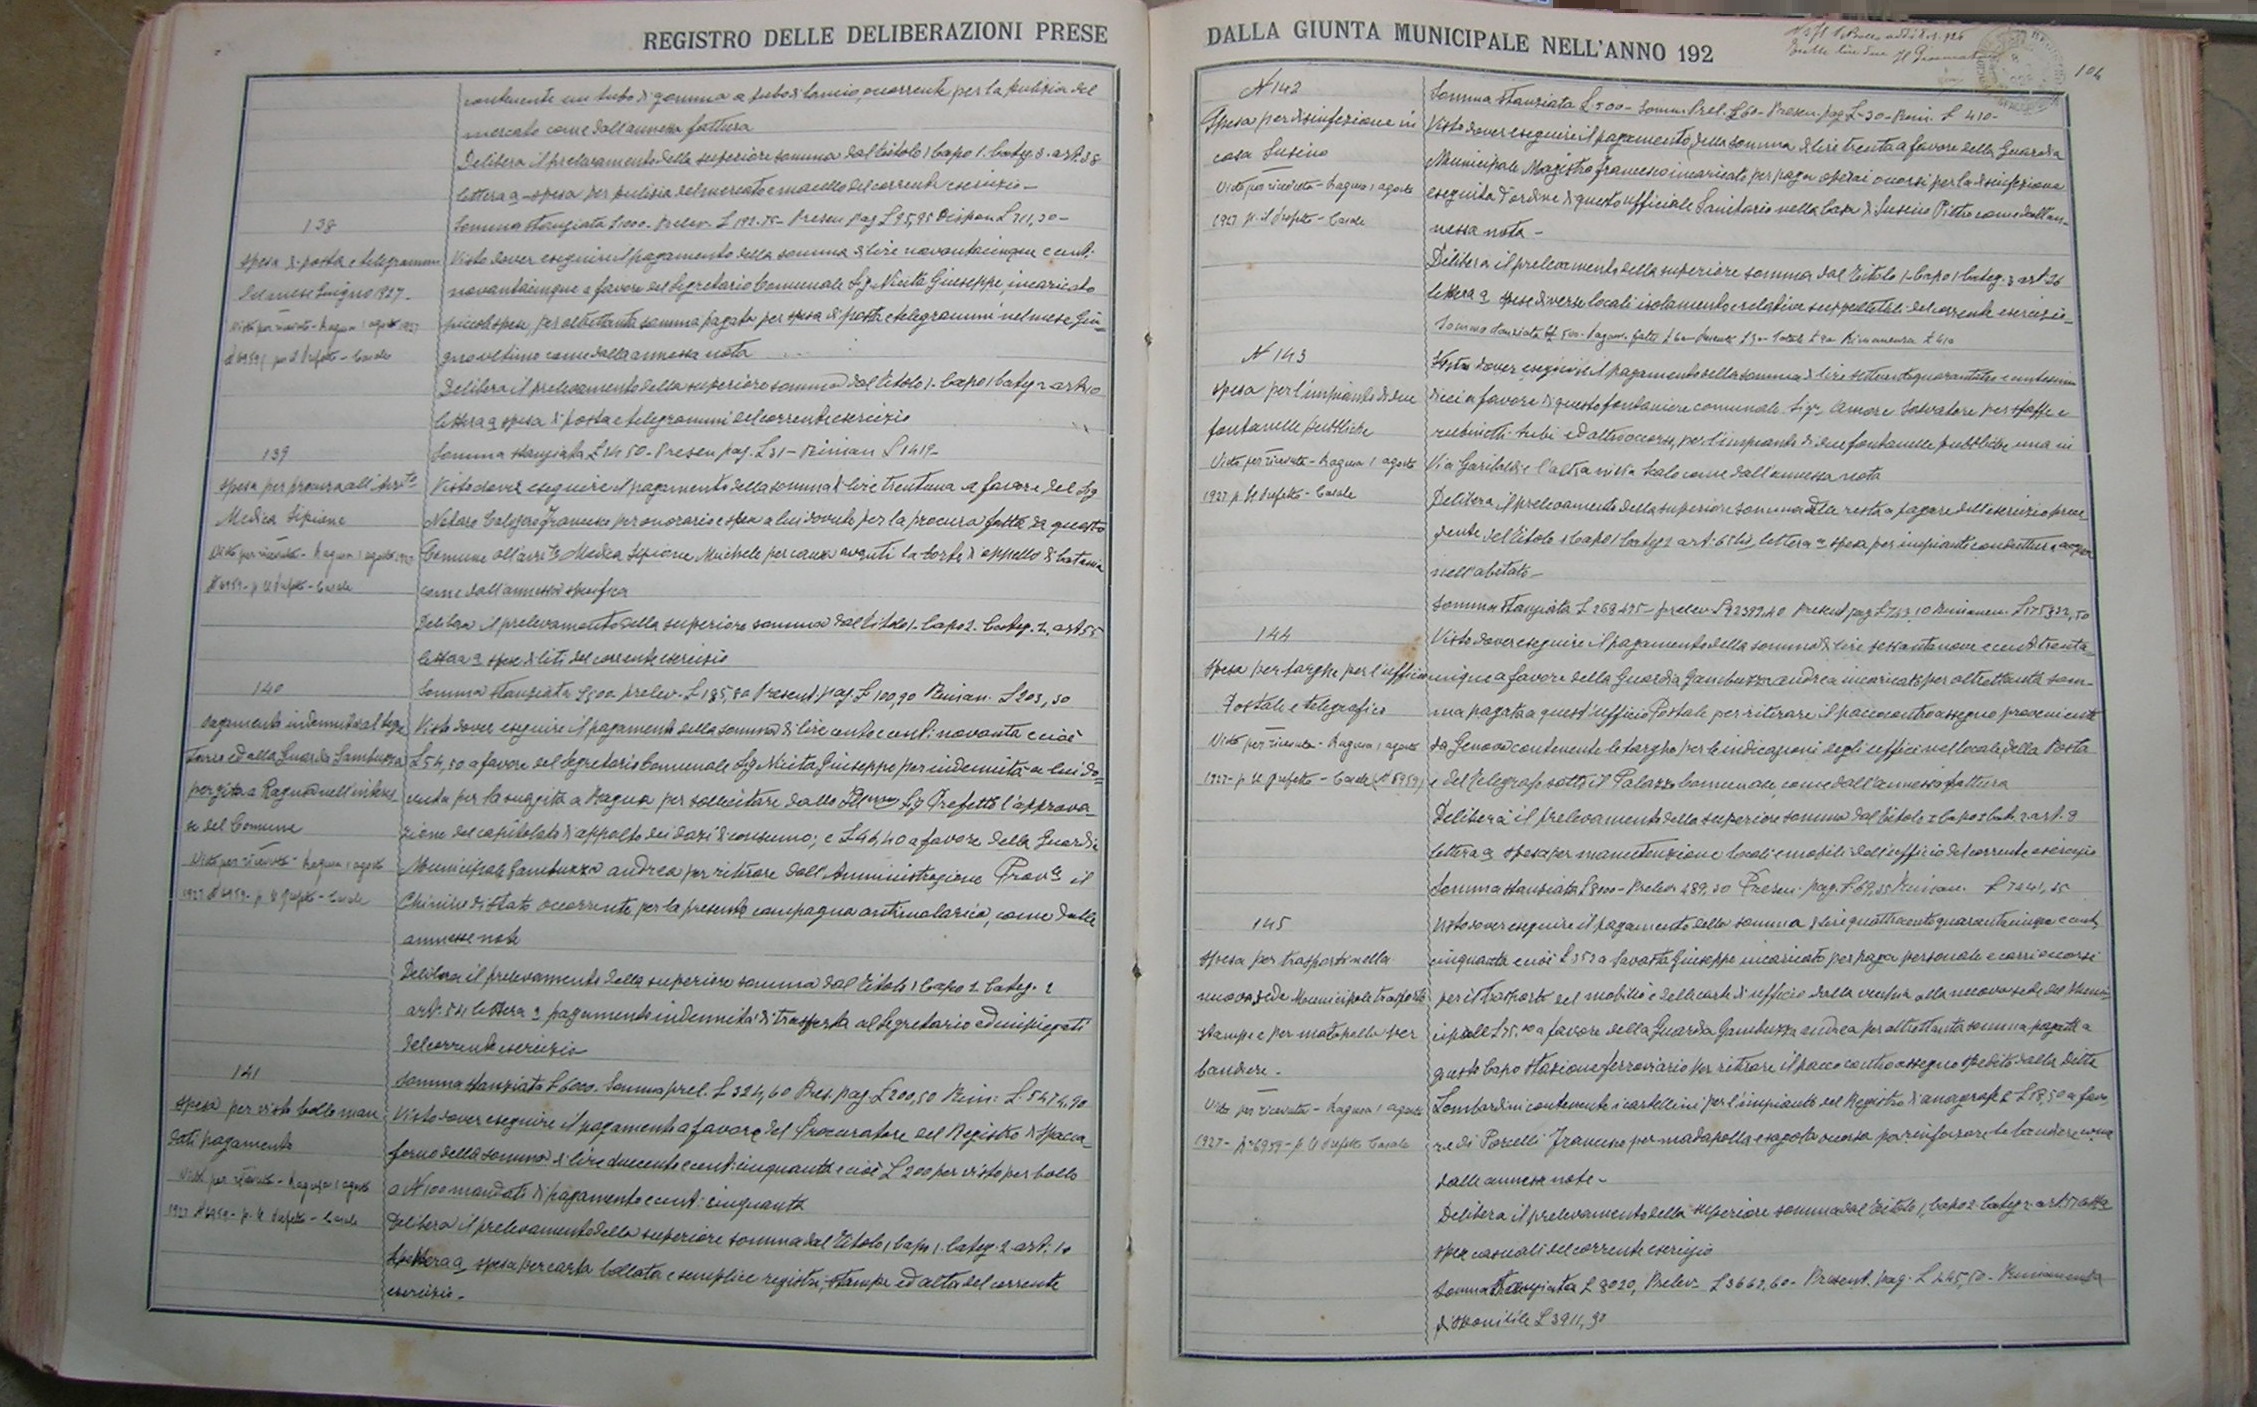 REGISTRO DELLE DELIBERAZIONI PRESE
contenente un tubo di gomma a tubo di lancio, occorrente per la pulizia del
mercato come dall'annessa fattura
Delibera il prelevamento della superiore somma dal titolo 1 Capo 1. Categ. 3. art. 38
lettera a - spesa per pulizia del mercato e macello del corrente esercizio -
138
Somma stanziata £ 1000 - Prelev. £ 192.75 - Presen pag £ 95,95 Dispon £ 711,30 -
spesa di posta e telegrammi
del mese Giugno 1927 -
Visto per ricevuta - Ragusa 1 agosto 1927
N 6959 p. il Prefetto - Casale
Visto dover eseguire il pagamento della somma di lire novantacinque e cent.
novantacinque a favore del Segretario Comunale Sig. Nicita Giuseppe, incaricato
piccole spese, per altrettanta somma pagata per spesa di posta e telegrammi nel mese Giu-
gno ultimo come dalla annessa nota
Delibera il prelevamento della superiore somma dal titolo 1. Capo 1 Categ 2 art. 10
lettera a spesa di posta e telegrammi del corrente esercizio
139
Somma stanziata £ 1450 - Presen pag. £ 31 - Riman £ 1419 -
spesa per procura all'Avv.to
Modica Scipione
Visto per ricevuta - Ragusa 1 agosto 1927
N 6959 - p. il Prefetto - Casale
Visto dover eseguire il pagamento della somma di lire trentuna a favore del Sig
Notaro Calogero Francesco per onorario e spesa a lui dovute per la procura fatta da questo
Comune all'avv.to Modica Scipione Michele per causa avanti la Corte di appello di Catania
come dall'annessa specifica
Delibera il prelevamento della superiore somma dal titolo 1. Capo 2. Categ. 2. art. 55
lettera a spese di liti del corrente esercizio
140
Somma stanziata £ 500. prelev. £ 185,80 Present. pag. £ 100,90 Riman. £ 203,30
Pagamento indennità al Segr.
e alla Guardia Gambuzza
per gita a Ragusa nell'interes-
se del Comune
Visto per ricevuta - Ragusa 1 agosto
1927 N 6959 - p. il Prefetto - Casale
Visto dover eseguire il pagamento della somma di lire cento e cent. novanta e cioè
£ 54,50 a favore del Segretario Comunale Sig Nicita Giuseppe per indennità a lui do-
vuta per la sua gita a Ragusa per sollecitare dallo Ill.mo Sig Prefetto l'approva-
zione del capitolato d'appalto dei dazi di consumo; e £ 46,40 a favore della Guardia
Municipale Gambuzza Andrea per ritirare dall'Amministrazione Prov.le il
Chinino di Stato occorrente per la presente campagna antimalarica, come dalle
annesse note
Delibera il prelevamento della superiore somma dal titolo 1 Capo 2 Categ. 2
art. 54 lettera a pagamento indennità di trasferta al Segretario ed impiegati
del corrente esercizio
141
Somma stanziata £ 6000. Somma prel. £ 324,60 Pres. pag. £ 200,50 Rim: £ 5474,90
spesa per visto bollo man-
dati pagamento
Visto per ricevuta - Ragusa 1 agosto
1927 N 6959 - p. il Prefetto - Casale
Visto dover eseguire il pagamento a favore del Procuratore del Registro di Spacca-
forno della somma di lire duecento e cent. cinquanta e cioè £ 200 per visto per bollo
a N 100 mandati di pagamento e cent. cinquanta
Delibera il prelevamento della superiore somma dal titolo 1 Capo 1. Categ. 2 art. 10
lettera a spesa per carta bollata e semplice registri, stampe ed altra del corrente
esercizio -
DALLA GIUNTA MUNICIPALE NELL'ANNO 192
104
N 142
Somma stanziata £ 500 - Somm. Prel. £ 60 - Presen. pag £ 30 - Rim. £ 410 -
Spesa per disinfezione in
casa Susino
Visto per ricevuta - Ragusa 1 agosto
1927 p. il Prefetto - Casale
Visto dover eseguire il pagamento della somma di lire trenta a favore della Guardia
Municipale Magistro Francesco incaricato per paga operai occorsi per la disinfezione
eseguita d'ordine di questo ufficiale Sanitario nella Casa di Susino Pietro come dall'an-
nessa nota -
Delibera il prelevamento della superiore somma dal Titolo 1 - Capo 1 Categ. 3 art. 26
lettera a spese diverse locali isolamento e relative suppellettili del corrente esercizio -
Somma stanziata £ 500 - Pagam. fatti £ 60 - Presente £ 30 - Totale £ 90 Rimanenza £ 410
N 143
spesa per l'impianto di due
fontanelle pubbliche
Visto per ricevuta - Ragusa 1 agosto
1927 p. il Prefetto - Casale
Visto dover eseguire il pagamento della somma di lire settecentoquarantatre e centesimi
dieci a favore di questo fontaniere comunale Sigr. Amore Salvatore per staffe e
rubinetti tubi ed altro occorso, per l'impianto di due fontanelle pubbliche una in
Via Garibaldi e l'altra in via Scalo come dall'annessa nota
Delibera il prelevamento della superiore somma dalla resta a pagare dell'esercizio prece-
dente del titolo 1 Capo 1 Categ 2 art. 65 bis lettera a spesa per impianto conduttura acqua
nell'abitato -
Somma stanziata £ 268475 - prelev £ 92399,40 Present pag £ 743,10 Rimanen. £ 175332,50
144
spesa per targhe per l'ufficio
Postale e telegrafico
Visto per ricevuta - Ragusa 1 agosto
1927 - p. il Prefetto - Casale (N 6959)
Visto dover eseguire il pagamento della somma di lire sessantanove e cent. trenta-
cinque a favore della Guardia Gambuzza Andrea incaricato per altrettanta som-
ma pagata a quest'ufficio Postale per ritirare il pacco contro assegno proveniente
da Genova contenente le targhe per le indicazioni degli uffici nel locale della Posta
e del Telegrafo sotto il Palazzo Comunale, come dall'annessa fattura
Delibera il prelevamento della superiore somma dal titolo 1 Capo 1 Cat. 2 art. 8
lettera a spesa per manutenzione locali e mobili dell'ufficio del corrente esercizio
Somma stanziata £ 8000 - Prelev. 689,30 Presen. pag. £ 69,35 Riman. £ 7241,35
145
spesa per trasporti nella
nuova sede Municipale trasporto
stampe e per madapolla per
bandiere -
Visto per ricevuta - Ragusa 1 agosto
1927 - N. 6959 - p. il Prefetto Casale
Visto dover eseguire il pagamento della somma di lire quattrocentoquarantacinque e cent.
cinquanta e cioè £ 353 a Savasta Giuseppe incaricato per paga personale e carri occorsi
per il trasporto del mobilio e delle carte d'ufficio dalla vecchia alla nuova sede del Muni-
a favore della Guardia Gambuzza Andrea per altrettanta somma pagata a
questo Capo Stazione ferroviario per ritirare il pacco contro assegno spedito dalla ditta
Lombardini contenente i cartellini per l'impianto del Registro d'anagrafe e £ 18,50 a favo-
re di Porcelli Francesco per madapolla e sagola occorsa per rinforzare le bandiere come
dalle annesse note -
Delibera il prelevamento della superiore somma dal titolo 1, Capo 2 Categ 2 art. 57 lettera
spese casuali del corrente esercizio
Somma stanziata £ 8020, Prelev - £ 3662,60 - Present. pag. £ 445,50 - Rimanenza
disponibile £ 3911,90